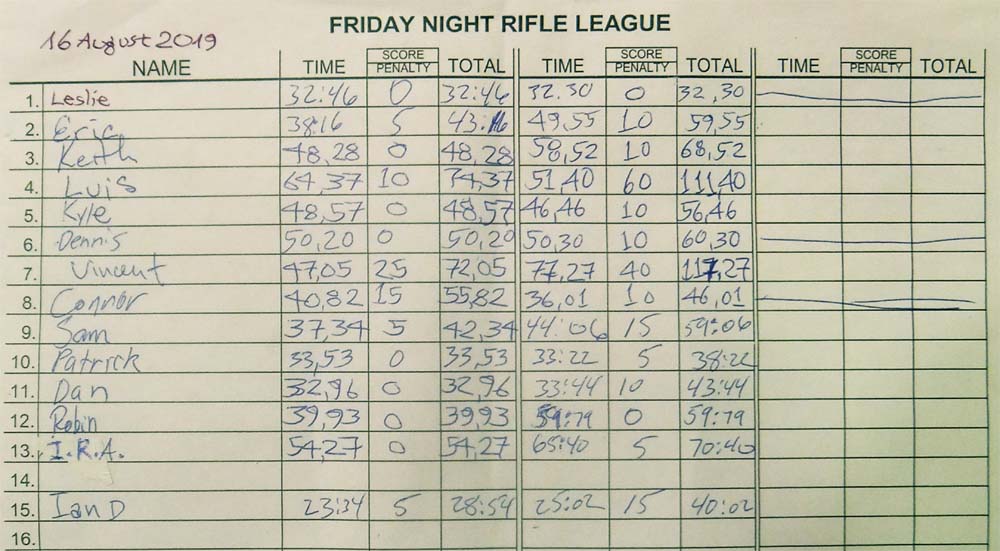 FRIDAY NIGHT RIFLE LEAGUE
16 August 2019
NAME TIME SCORE PENALTY TOTAL TIME SCORE PENALTY TOTAL TIME SCORE PENALTY TOTAL
1. Leslie 32:46 0 32:46 32.30 0 32,30
2. Eric 38:16 5 43:16 49,55 10 59,55
3. Keith 48,28 0 48,28 58,52 10 68,52
4. Luis 64,37 10 74,37 51,40 60 111,40
5. Kyle 48,57 0 48,57 46,46 10 56,46
6. Dennis 50,20 0 50,20 50,30 10 60,30
7. Vincent 47,05 25 72,05 77,27 40 117,27
8. Connor 40,82 15 55,82 36,01 10 46,01
9. Sam 37,34 5 42,34 44:06 15 59:06
10. Patrick 33,53 0 33,53 33:22 5 38:22
11. Dan 32,96 0 32,96 33:44 10 43:44
12. Robin 39,93 0 39,93 59:79 0 59:79
13. I.R.A. 54,27 0 54,27 65:40 5 70:40
14.
15. Ian D 23:34 5 28:54 25:02 15 40:02
16.